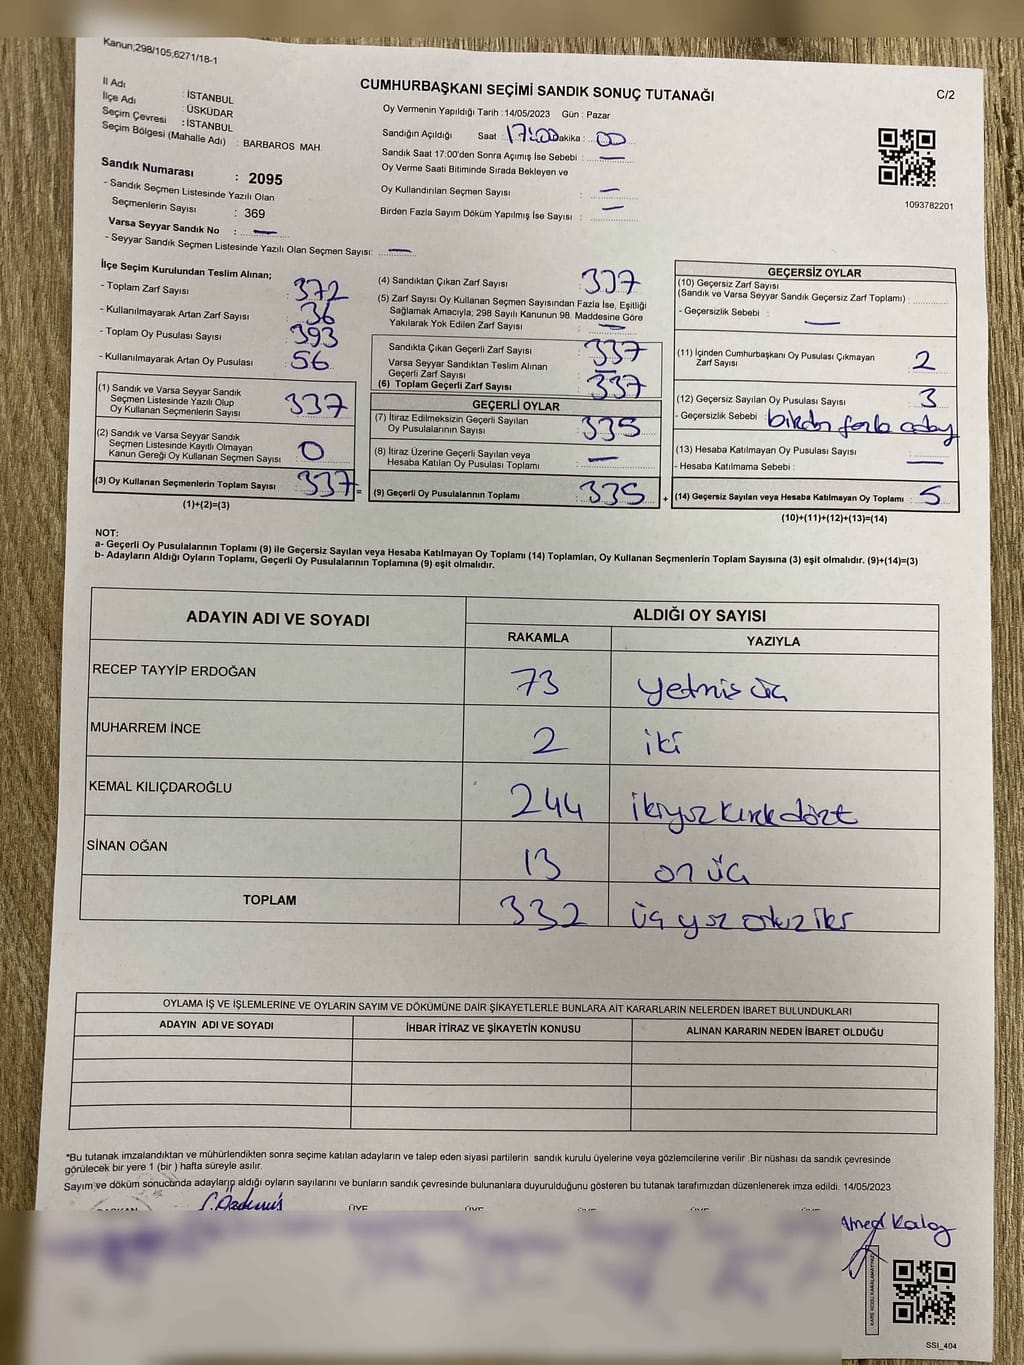 Kanun;298/105,6271/18-1
CUMHURBAŞKANI SEÇİMİ SANDIK SONUÇ TUTANAĞI
C/2
İl Adı : İSTANBUL
İlçe Adı : ÜSKÜDAR
Seçim Çevresi : İSTANBUL
Seçim Bölgesi (Mahalle Adı) : BARBAROS MAH.
Oy Vermenin Yapıldığı Tarih : 14/05/2023 Gün : Pazar
Sandığın Açıldığı Saat : 17:00 Dakika : 00
Sandık Saat 17:00'den Sonra Açımış İse Sebebi : —
Oy Verme Saati Bitiminde Sırada Bekleyen ve
Oy Kullandırılan Seçmen Sayısı : —
Birden Fazla Sayım Döküm Yapılmış İse Sayısı : —
1093782201
Sandık Numarası : 2095
- Sandık Seçmen Listesinde Yazılı Olan
Seçmenlerin Sayısı : 369
Varsa Seyyar Sandık No : —
- Seyyar Sandık Seçmen Listesinde Yazılı Olan Seçmen Sayısı: —
İlçe Seçim Kurulundan Teslim Alınan;
- Toplam Zarf Sayısı : 372
- Kullanılmayarak Artan Zarf Sayısı : 36
- Toplam Oy Pusulası Sayısı : 393
- Kullanılmayarak Artan Oy Pusulası : 56
(1) Sandık ve Varsa Seyyar Sandık
Seçmen Listesinde Yazılı Olup
Oy Kullanan Seçmenlerin Sayısı : 337
(2) Sandık ve Varsa Seyyar Sandık
Seçmen Listesinde Kayıtlı Olmayan
Kanun Gereği Oy Kullanan Seçmen Sayısı : 0
(3) Oy Kullanan Seçmenlerin Toplam Sayısı : 337 =
(1)+(2)=(3)
(4) Sandıktan Çıkan Zarf Sayısı : 337
(5) Zarf Sayısı Oy Kullanan Seçmen Sayısından Fazla İse, Eşitliği
Sağlamak Amacıyla; 298 Sayılı Kanunun 98. Maddesine Göre
Yakılarak Yok Edilen Zarf Sayısı : —
Sandıkta Çıkan Geçerli Zarf Sayısı : 337
Varsa Seyyar Sandıktan Teslim Alınan
Geçerli Zarf Sayısı : —
(6) Toplam Geçerli Zarf Sayısı : 337
GEÇERLİ OYLAR
(7) İtiraz Edilmeksizin Geçerli Sayılan
Oy Pusulalarının Sayısı : 335
(8) İtiraz Üzerine Geçerli Sayılan veya
Hesaba Katılan Oy Pusulası Toplamı : —
(9) Geçerli Oy Pusulalarının Toplamı : 335 +
GEÇERSİZ OYLAR
(10) Geçersiz Zarf Sayısı
(Sandık ve Varsa Seyyar Sandık Geçersiz Zarf Toplamı) :
- Geçersizlik Sebebi : —
(11) İçinden Cumhurbaşkanı Oy Pusulası Çıkmayan
Zarf Sayısı : 2
(12) Geçersiz Sayılan Oy Pusulası Sayısı : 3
- Geçersizlik Sebebi : birden fazla aday
(13) Hesaba Katılmayan Oy Pusulası Sayısı : —
- Hesaba Katılmama Sebebi :
(14) Geçersiz Sayılan veya Hesaba Katılmayan Oy Toplamı : 5
(10)+(11)+(12)+(13)=(14)
NOT:
a- Geçerli Oy Pusulalarının Toplamı (9) ile Geçersiz Sayılan veya Hesaba Katılmayan Oy Toplamı (14) Toplamları, Oy Kullanan Seçmenlerin Toplam Sayısına (3) eşit olmalıdır. (9)+(14)=(3)
b- Adayların Aldığı Oyların Toplamı, Geçerli Oy Pusulalarının Toplamına (9) eşit olmalıdır.
ADAYIN ADI VE SOYADI ALDIĞI OY SAYISI
RAKAMLA YAZIYLA
RECEP TAYYİP ERDOĞAN 73 yetmis üç
MUHARREM İNCE 2 iki
KEMAL KILIÇDAROĞLU 244 ikiyüz kırk dört
SİNAN OĞAN 13 on üç
TOPLAM 332 üç yüz otuz iki
OYLAMA İŞ VE İŞLEMLERİNE VE OYLARIN SAYIM VE DÖKÜMÜNE DAİR ŞİKAYETLERLE BUNLARA AİT KARARLARIN NELERDEN İBARET BULUNDUKLARI
ADAYIN ADI VE SOYADI İHBAR İTİRAZ VE ŞİKAYETİN KONUSU ALINAN KARARIN NEDEN İBARET OLDUĞU
*Bu tutanak imzalandıktan ve mühürlendikten sonra seçime katılan adayların ve talep eden siyasi partilerin sandık kurulu üyelerine veya gözlemcilerine verilir .Bir nüshası da sandık çevresinde
görülecek bir yere 1 (bir ) hafta süreyle asılır.
Sayım ve döküm sonucunda adayların aldığı oyların sayılarını ve bunların sandık çevresinde bulunanlara duyurulduğunu gösteren bu tutanak tarafımızdan düzenlenerek imza edildi. 14/05/2023
BAŞKAN ÜYE ÜYE ÜYE ÜYE
SSI_404